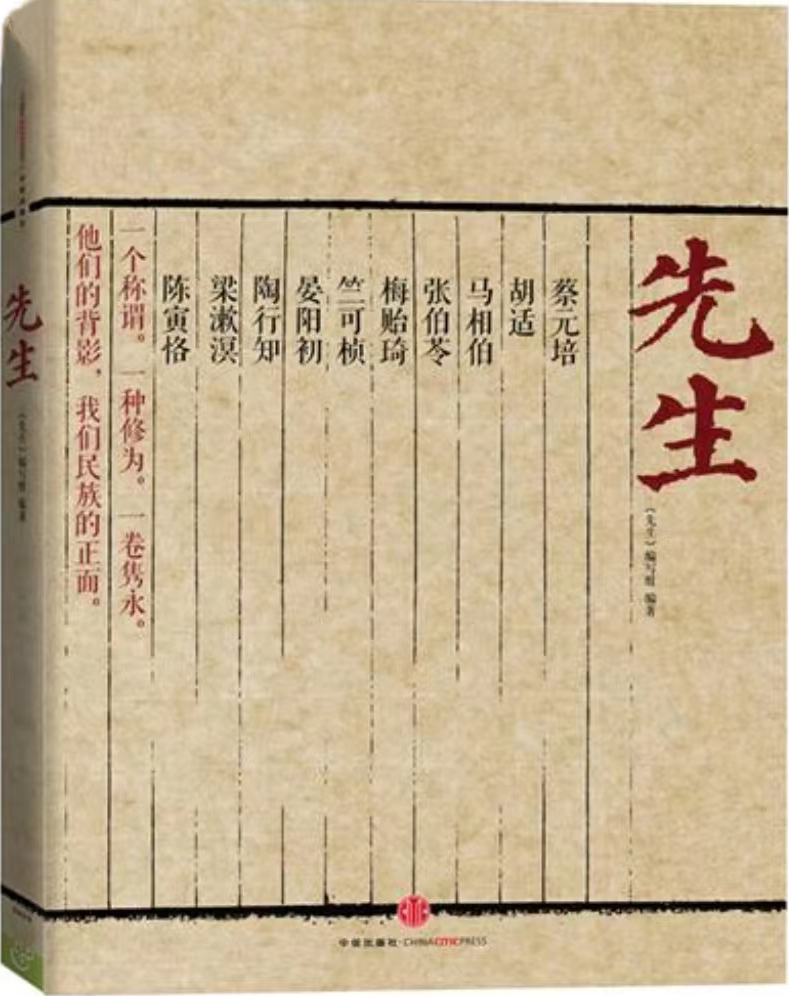 先生
《先生》编写组 编著
蔡元培
胡适
马相伯
张伯苓
梅贻琦
竺可桢
晏阳初
陶行知
梁漱溟
陈寅恪
一个称谓。一种修为。一卷隽永。
他们的背影，我们民族的正面。
中信出版社·CHINACITICPRESS
先生
《先生》编写组 编著